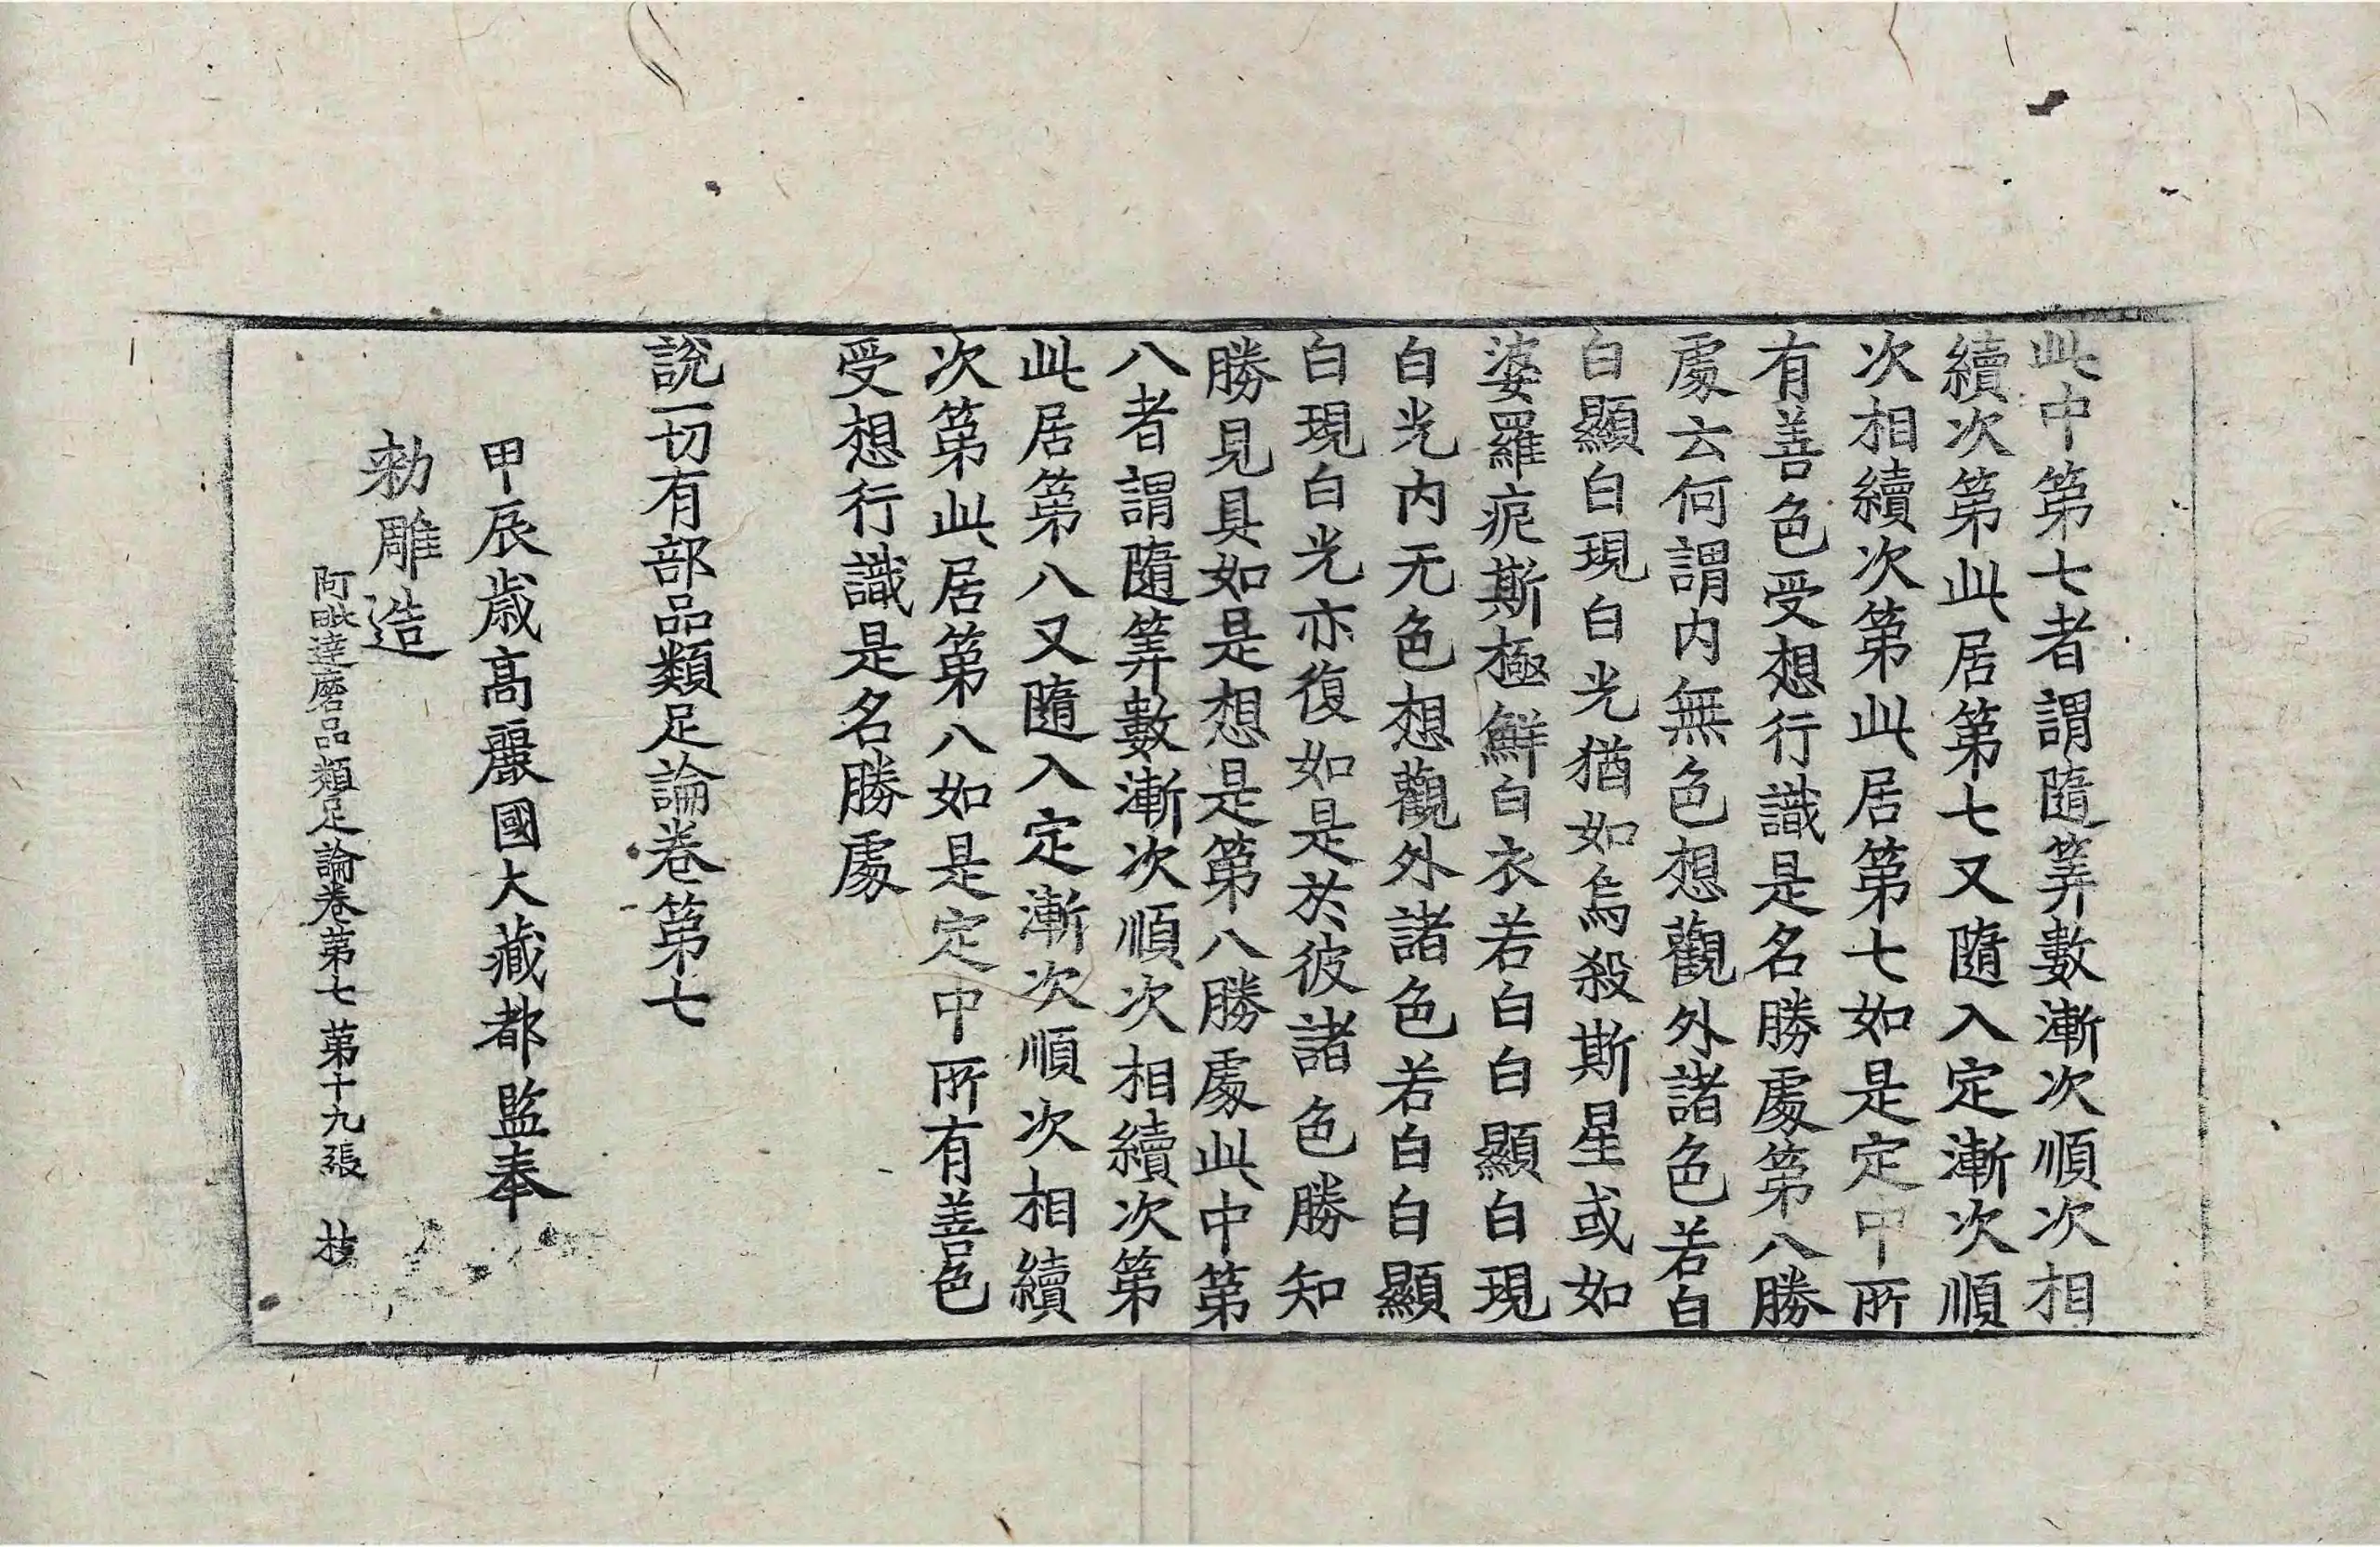 此中第七者謂隨筭數漸次順次相
續次第此居第七又隨入定漸次順
次相續次第此居第七如是定中所
有善色受想行識是名勝處第八勝
處云何謂内無色想觀外諸色若白
白顯白現白光猶如烏殺斯星或如
婆羅痆斯極鮮白衣若白白顯白現
白光内无色想觀外諸色若白白顯
白現白光亦復如是於彼諸色勝知
勝見具如是想是第八勝處此中第
八者謂隨筭數漸次順次相續次第
此居第八又隨入定漸次順次相續
次第此居第八如是定中所有善色
受想行識是名勝處
說一切有部品類足論卷第七
甲辰歲高麗國大藏都監奉
勑雕造
阿毗達磨品類足論卷第七 第十九張 枝